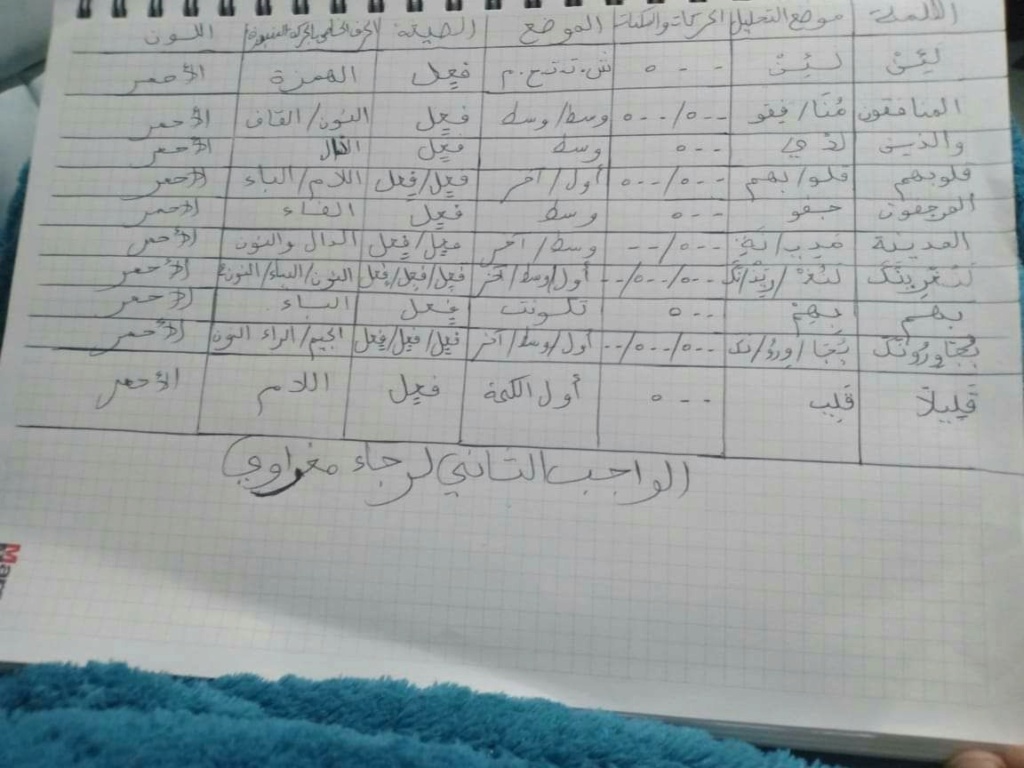 الكلمة موضع التحليل الحركات والسكنات الموضع الصيغة اللون
لَئِنْ لَئِنْ - - o ش.ت.ح.م فَعِل الهمزة الأحمر
المنافقون مُنَا/فِقُو - - o/- - o وسط/وسط فَعِل النون/القاف الأحمر
والذين لذِي - - o وسط فَعِل الذال الأحمر
قلوبهم قلو/بهم - - o/- - o أول/آخر فَعِل/فَعِل اللام/الباء الأحمر
المرجفون جفو - - o وسط فَعِل الفاء الأحمر
المدينة مَدِيـ/نَةِ - - o/- - وسط/آخر فَعِل/فَعِل الدال والنون الأحمر
لَنُغْرِيَنَّكَ - - o/- - o/- - أول/وسط/آخر فَعِل/فَعِل/فَعِل النون/الياء/النون الأحمر
بهم بِهِمْ - - o تكونت فَعِل الباء الأحمر
يُجَاوِرُونَكَ يُجَا/وِرُو/نَكَ - - o/- - o/- - أول/وسط/آخر فَعِل/فَعِل/فَعِل الجيم/الراء النون الأحمر
قَلِيلاً - - o أول الكلمة فَعِل اللام الأحمر
الواجب الثاني لرجاء مغراوي
Mar